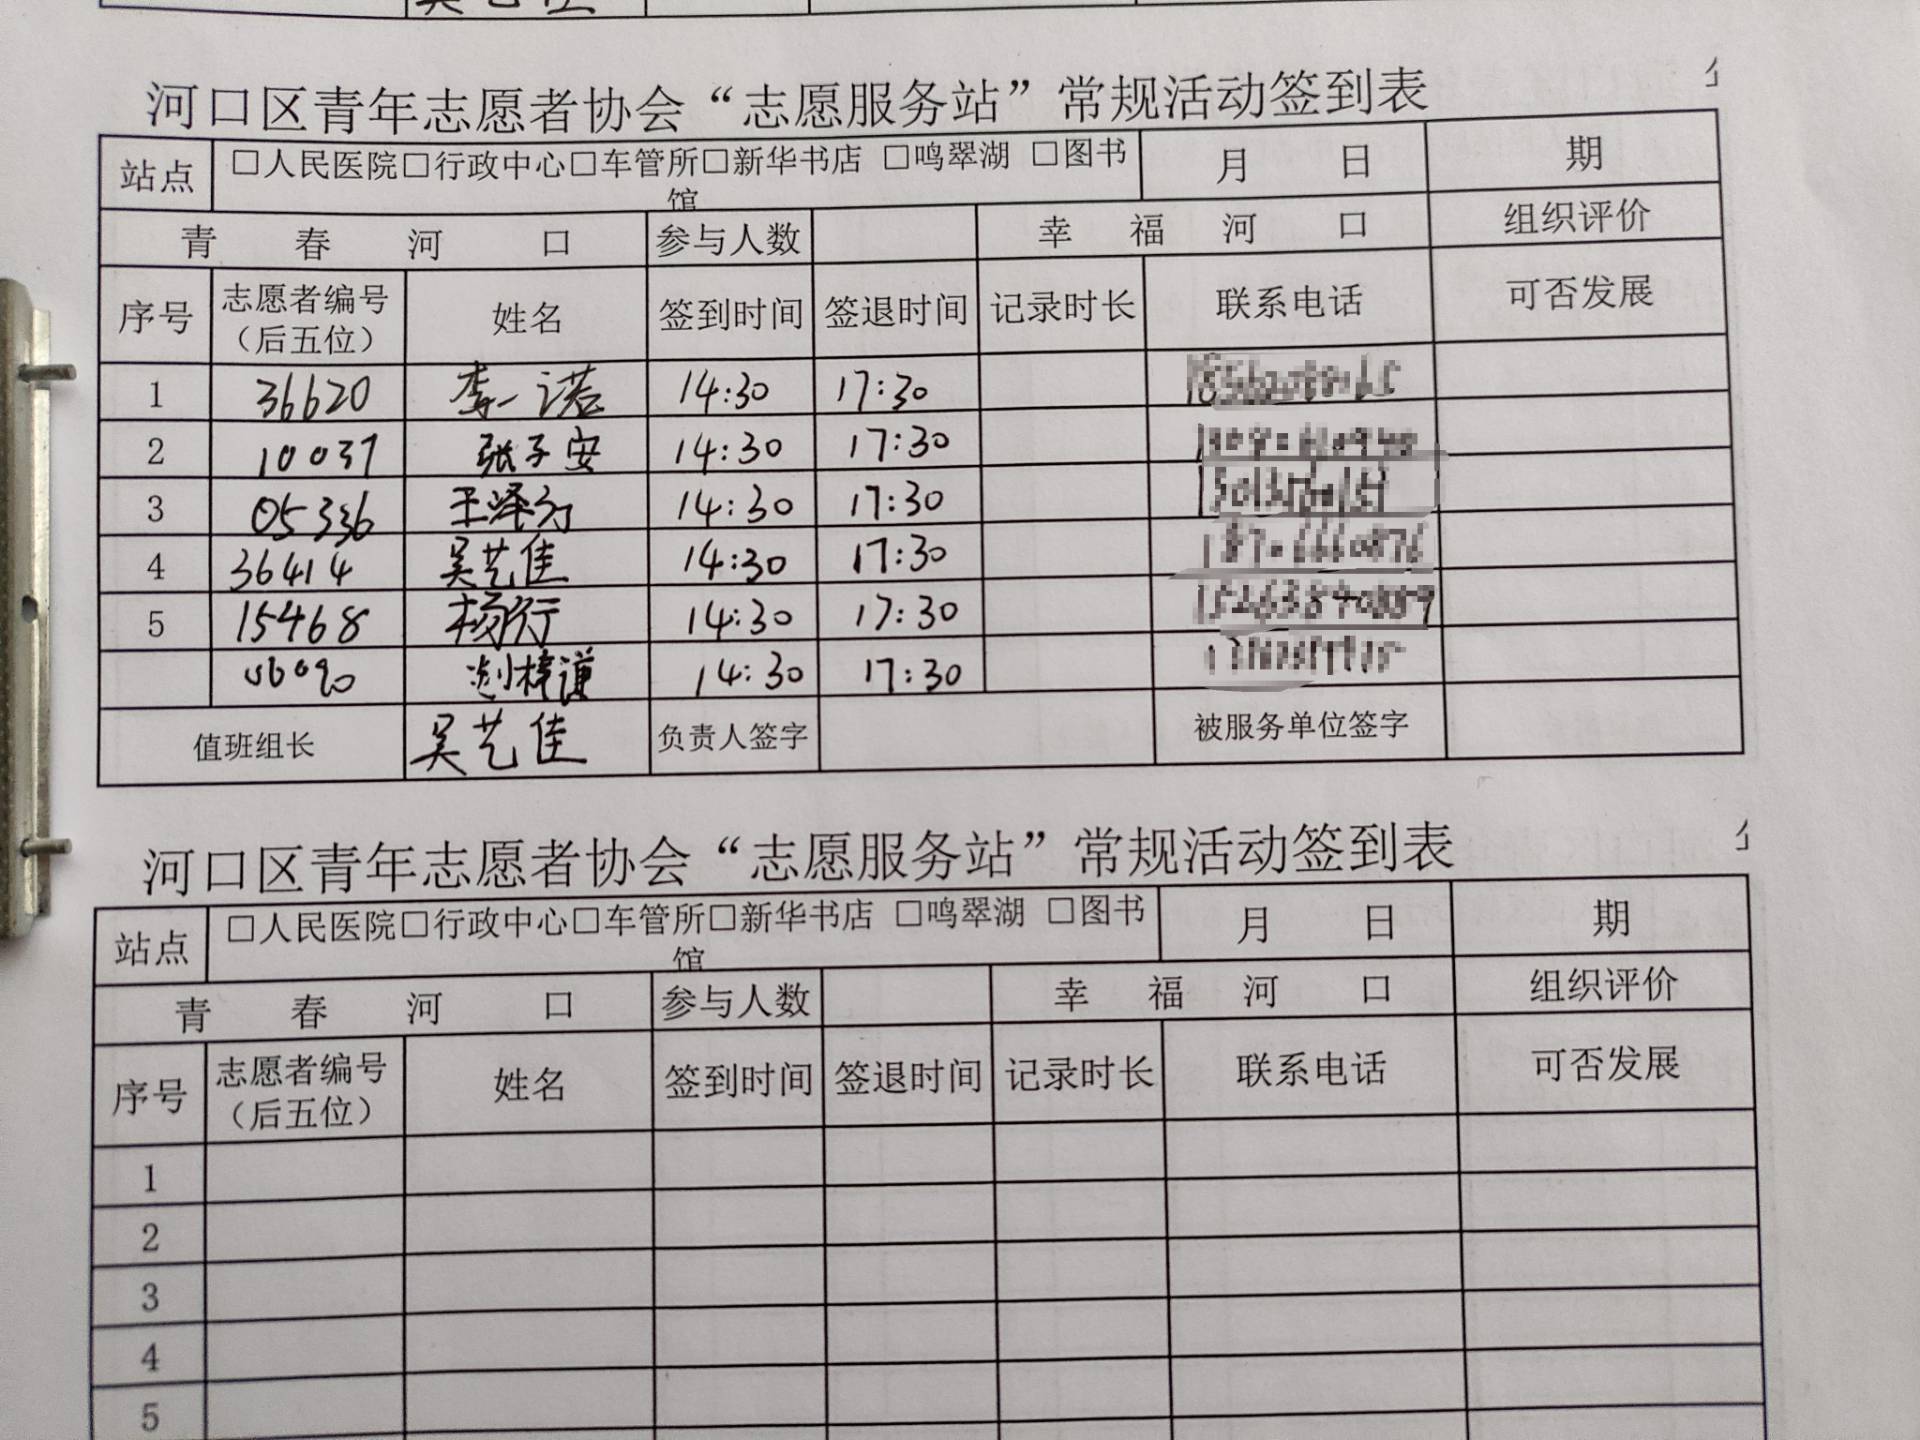 河口区青年志愿者协会“志愿服务站”常规活动签到表
站点 □人民医院□行政中心□车管所□新华书店 □鸣翠湖 □图书馆 月 日 期
青 春 河 口 参与人数 幸 福 河 口 组织评价
序号 志愿者编号（后五位） 姓名 签到时间 签退时间 记录时长 联系电话 可否发展
1 36620 李一诺 14:30 17:30
2 10037 张子安 14:30 17:30
3 05336 王泽 14:30 17:30
4 36414 吴艺佳 14:30 17:30
5 15468 杨行 14:30 17:30
06090 刘梓谦 14:30 17:30
值班组长 吴艺佳 负责人签字 被服务单位签字
河口区青年志愿者协会“志愿服务站”常规活动签到表
站点 □人民医院□行政中心□车管所□新华书店 □鸣翠湖 □图书馆 月 日 期
青 春 河 口 参与人数 幸 福 河 口 组织评价
序号 志愿者编号（后五位） 姓名 签到时间 签退时间 记录时长 联系电话 可否发展
1
2
3
4
5